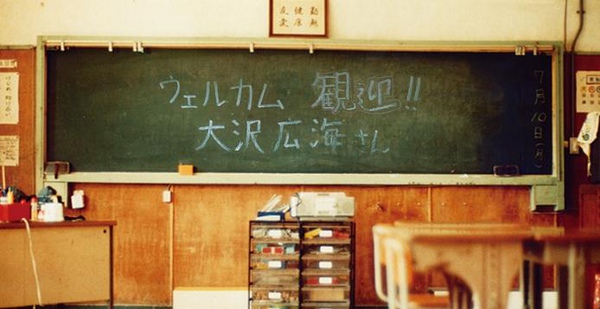 勤勉
健康
友愛
ウェルカム 観迎!!
大沢広海さん
7月10日(月)